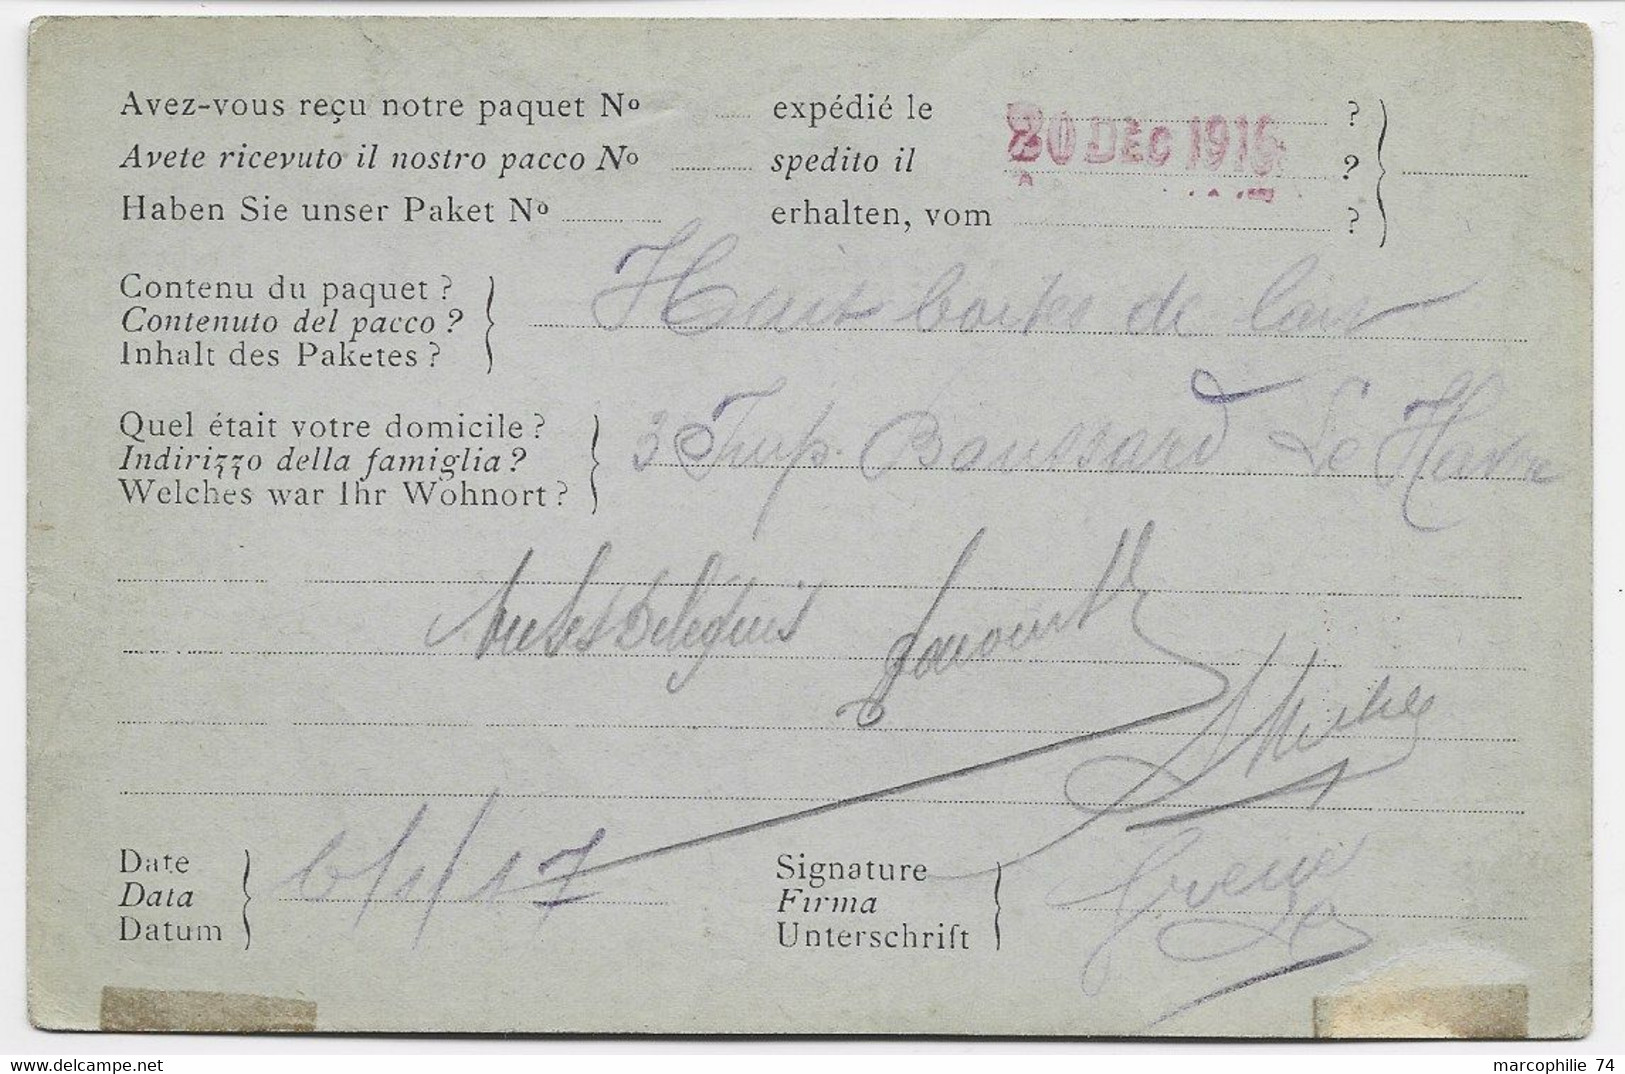 Avez-vous reçu notre paquet Nº ..... expédié le ..... ?
Avete ricevuto il nostro pacco Nº ..... spedito il 20 DEC 1916 ?
Haben Sie unser Paket Nº ..... erhalten, vom ..... ?
Contenu du paquet ?
Contenuto del pacco ?
Inhalt des Paketes ?
Huit boites de
Quel était votre domicile ?
Indirizzo della famiglia ?
Welches war Ihr Wohnort ?
3 Imp. Boussard Le Havre
Date
Data
Datum
6/1/17
Signature
Firma
Unterschrift
marcophilie 74